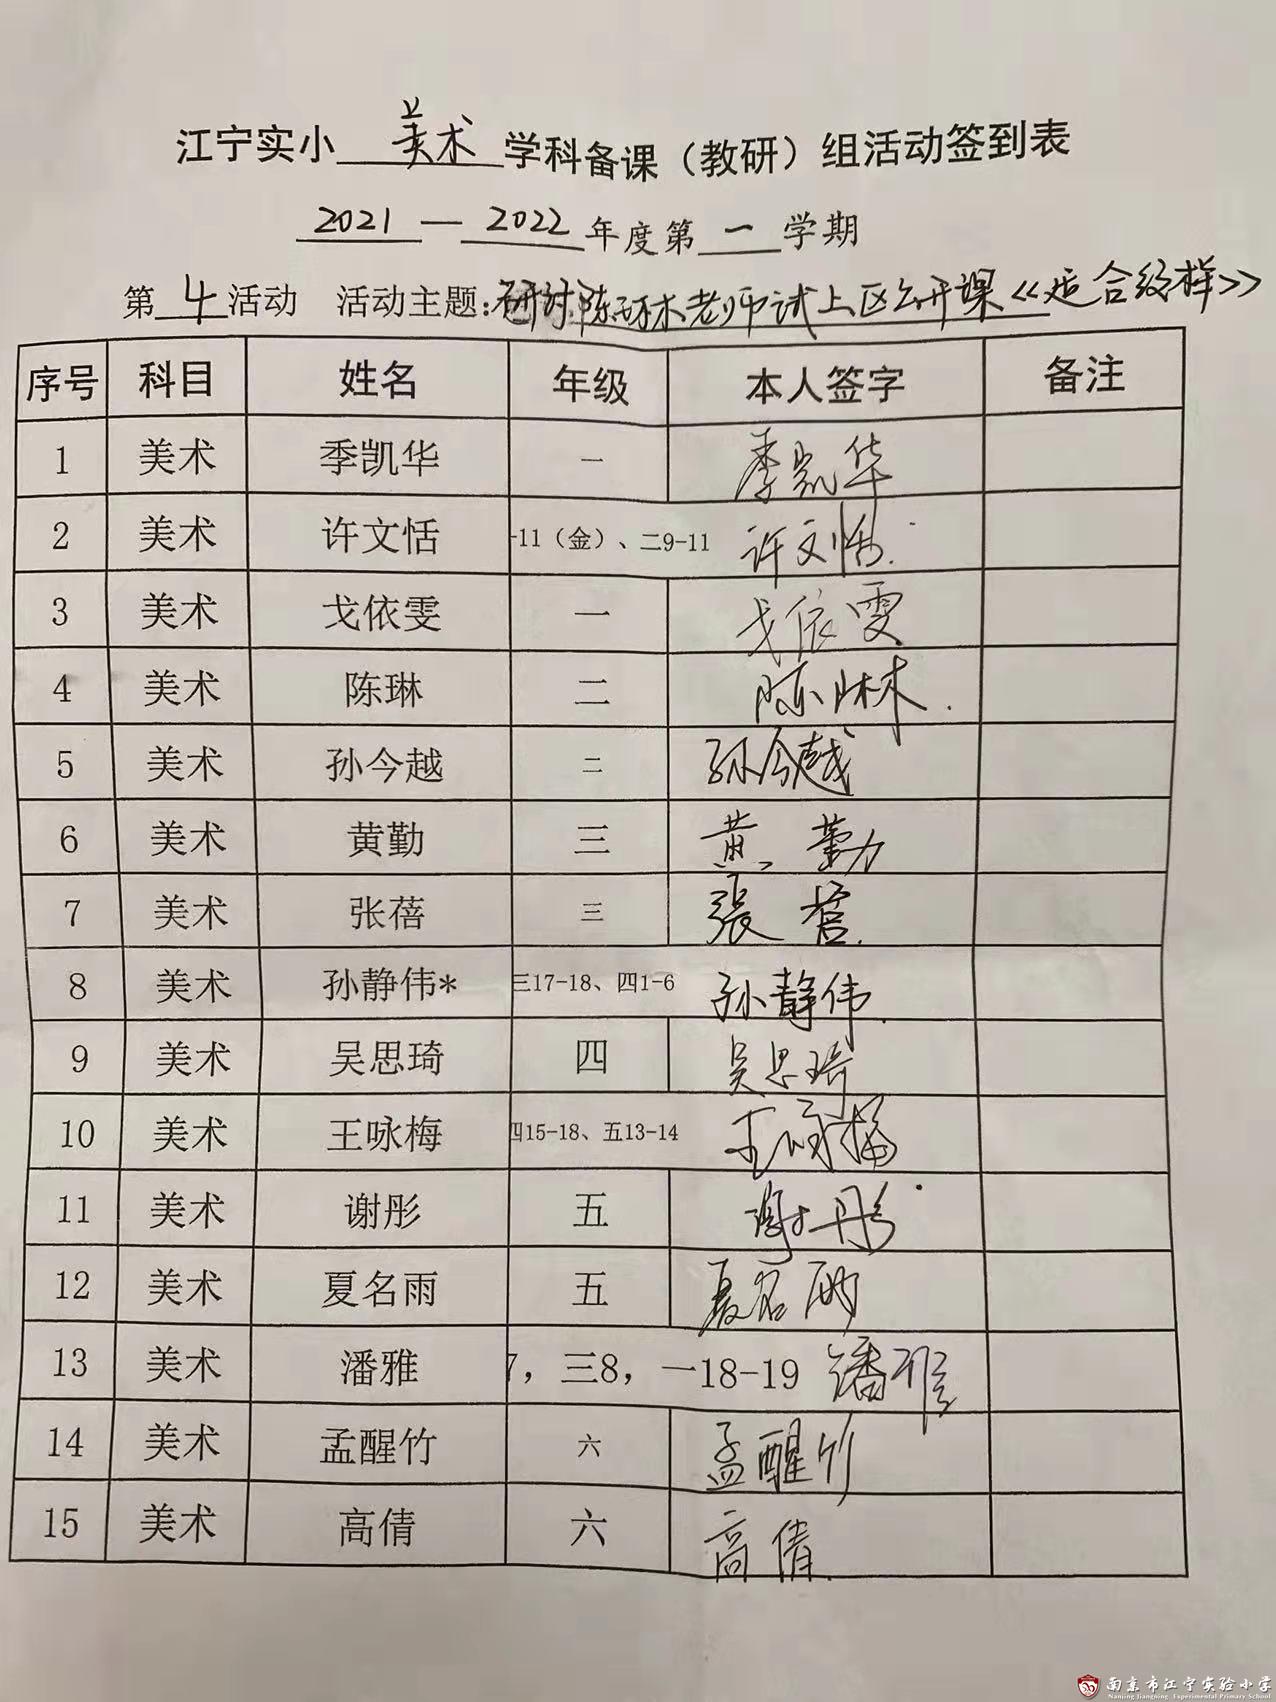 江宁实小 美术 学科备课（教研）组活动签到表
2021 — 2022 年度第 一 学期
第 4 活动 活动主题:研讨陈琳老师试上区公开课《适合纹样》
序号 科目 姓名 年级 本人签字 备注
1 美术 季凯华 一 季凯华
2 美术 许文恬 -11（金）、二9-11 许文恬
3 美术 戈依雯 一 戈依雯
4 美术 陈琳 二 陈琳
5 美术 孙今越 二 孙今越
6 美术 黄勤 三 黄勤
7 美术 张蓓 三 張蓓
8 美术 孙静伟* 三17-18、四1-6 孙静伟
9 美术 吴思琦 四 吴思琦
10 美术 王咏梅 四15-18、五13-14 王咏梅
11 美术 谢彤 五 谢彤
12 美术 夏名雨 五 夏名雨
13 美术 潘雅 7，三8，一18-19 潘雅
14 美术 孟醒竹 六 孟醒竹
15 美术 高倩 六 高倩
南京市江宁实验小学
Nanjing Jiangning Experimental Primary School